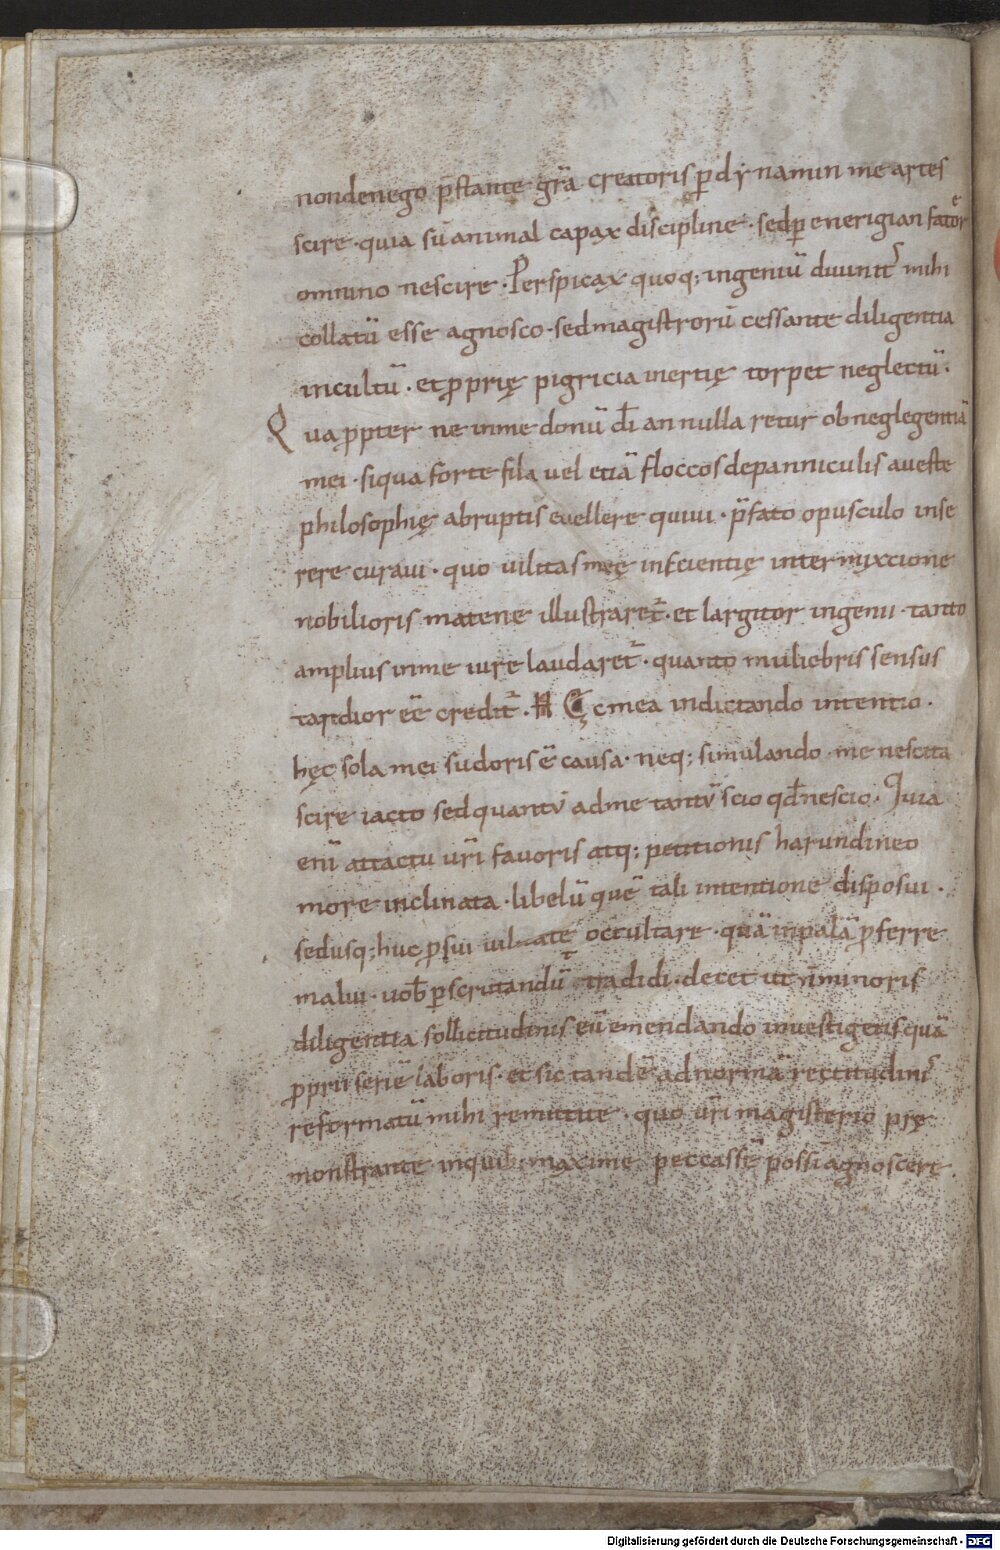 nondenego p̄stante gr̄a creatoris ꝑ dynamin me artes
scire · quia sū animal capax discipline · sed ꝑ enerigian fateor
omnino nescire · Perspicax quoq; ingeniū divinit᷒ mihi
collatū esse agnosco · sed magistrorū cessante diligentia
incultū · et ꝓprię pigricia inertię torpet neglectū ·
Quaꝓpter ne in me donū dī annullaretur ob neglegentiā
mei · siqua forte fila vel etiā floccos de panniculis a veste
philosophię abruptis evellere quivi · p̄fato opusculo inse
rere curavi · quo vilitas meę inscientię intermyxcione
nobilioris materię illustraret᷒ · et largitor ingenii · tanto
amplius in me iure laudaret᷒ · quanto muliebris sensus
tardior eē credit᷒ · H Ęc mea in dictando intentio ·
hęc sola mei sudoris ē causa · neq; simulando me nescita
scire iacto sed quantū ad me tantū scio qđ nescio · Quia
enī attactu vr̄i favoris atq; petitionis harundineo
more inclinata · libelū quē tali intentione disposui ·
sed usq; huc ꝓ sui vilitate occultare · quā in palā ꝓferre
malui · vob̄ ꝑscrutandū tradidi · decet ut n̄ minoris
diligentia sollicitudinis eū emendando investigetis quā
ꝓprii seriē laboris · et sic tandē ad normā rectitudinis
reformatū mihi remittite · quo vr̄i magisterio pre
monstrante in quib; maxime peccassē possi agnoscere ·
Digitalisierung gefördert durch die Deutsche Forschungsgemeinschaft - DFG